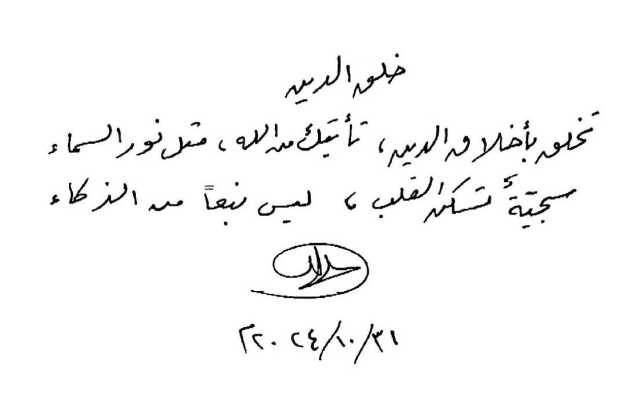 خلق الدين
تخلق بأخلاق الدين، تأتيك من الله، مثل نور السماء
سجيّةٌ تسكن القلب، ليس نبعاً من الذكاء
٣١/١٠/٢٠٢٤م